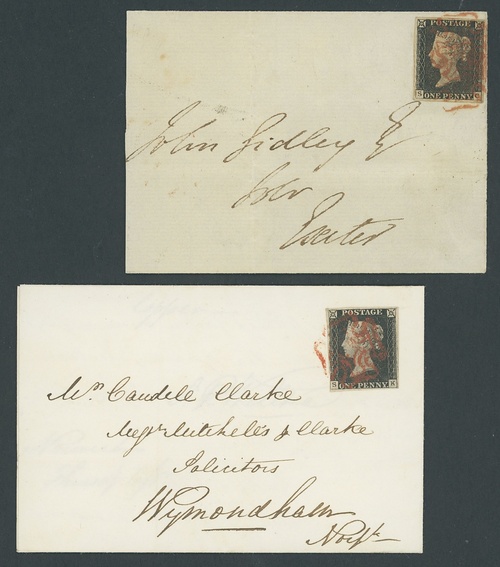 POSTAGE
S
ONE PENNY
John Gidley Eq
Solr
Exeter
POSTAGE
S K
ONE PENNY
Mr. Caudell Clarke
Messrs Mitchells & Clarke
Solicitors
Wymondham
Norfk